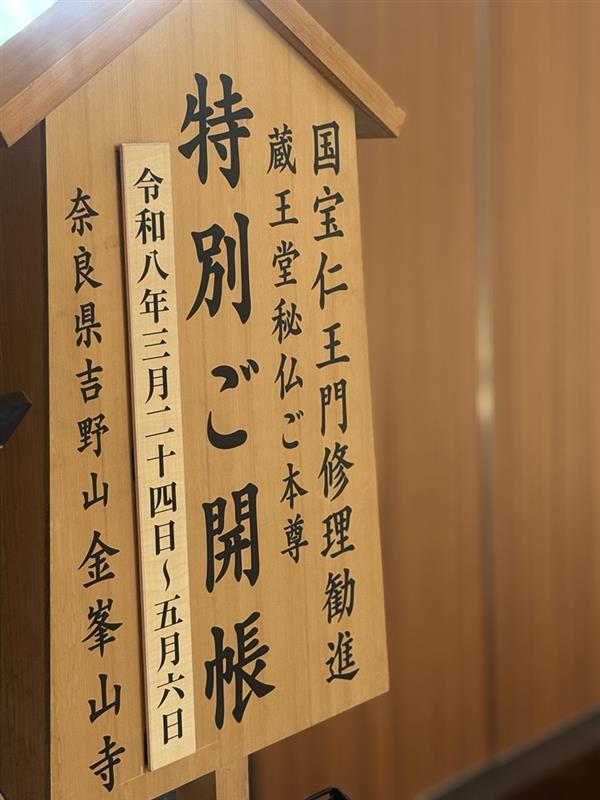 国宝仁王門修理勧進
蔵王堂秘仏ご本尊
特別ご開帳
令和八年三月二十四日~五月六日
奈良県吉野山 金峯山寺